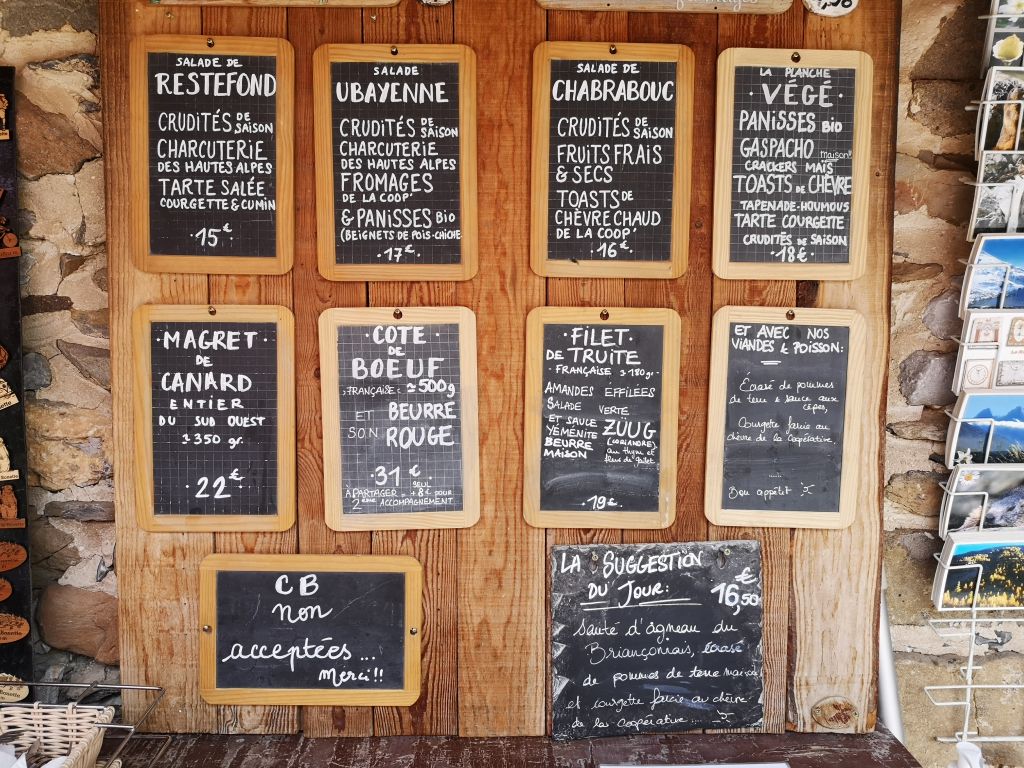 SALADE DE
RESTEFOND
CRUDITÉS DE SAISON
CHARCUTERIE
DES HAUTES ALPES
TARTE SALÉE
COURGETTE & CUMIN
15€
SALADE
UBAYENNE
CRUDITÉS DE SAISON
CHARCUTERIE
DES HAUTES ALPES
FROMAGES
DE LA COOP'
& PANISSES BIO
(BEIGNETS DE POIS-CHICHE
17€
SALADE DE
CHABRABOUC
CRUDITÉS DE SAISON
FRUITS FRAIS
& SECS
TOASTS DE
CHÈVRE CHAUD
DE LA COOP'
16€
LA PLANCHE
· VÉGÉ ·
PANISSES BIO
GASPACHO maison
CRACKERS MAÏS
TOASTS DE CHÈVRE
TAPENADE-HOUMOUS
TARTE COURGETTE
CRUDITÉS DE SAISON
18€
· MAGRET ·
DE
CANARD
ENTIER
DU SUD OUEST
≃ 350 gr.
22€
· CÔTE ·
DE
BOEUF
FRANÇAISE: ≃ 500g
ET BEURRE
SON ROUGE
31€
À PARTAGER = +8€ SEUL POUR
2ÈME ACCOMPAGNEMENT
· FILET ·
DE TRUITE
· FRANÇAISE ≃ 180gr.
AMANDES ÉFFILÉES
SALADE VERTE
ET SAUCE ZÜUG
YÉMÉNITE (CORIANDRE)
BEURRE au thym et
MAISON
19€
ET AVEC NOS
VIANDES & POISSON:
Écrasé de pommes
de terre & sauce aux
cèpes,
Courgette farcie au
chèvre de la coopérative.
Bon appétit
CB
non
acceptées...
Merci!!
LA SUGGESTION
DU JOUR: 16,50€
Sauté d'agneau du
Briançonnais, écrasé
de pommes de terre maison
et courgette farcie au chèvre
de la coopérative...